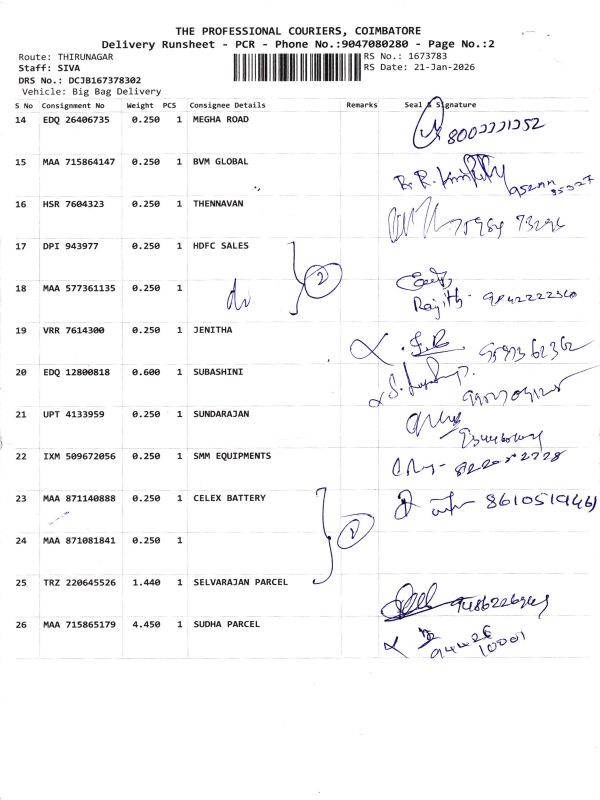 THE PROFESSIONAL COURIERS, COIMBATORE
Delivery Runsheet - PCR - Phone No.:9047080280 - Page No.:2
Route: THIRUNAGAR
RS No.: 1673783
Staff: SIVA
RS Date: 21-Jan-2026
DRS No.: DCJB167378302
Vehicle: Big Bag Delivery
S No Consignment No Weight PCS Consignee Details Remarks Seal & Signature
14 EDQ 26406735 0.250 1 MEGHA ROAD
15 MAA 715864147 0.250 1 BVM GLOBAL
16 HSR 7604323 0.250 1 THENNAVAN
17 DPI 943977 0.250 1 HDFC SALES
2
18 MAA 577361135 0.250 1
Rajith - 9042222560
19 VRR 7614300 0.250 1 JENITHA
20 EDQ 12800818 0.600 1 SUBASHINI
21 UPT 4133959 0.250 1 SUNDARAJAN
22 IXM 509672056 0.250 1 SMM EQUIPMENTS
23 MAA 871140888 0.250 1 CELEX BATTERY 8610519461
24 MAA 871081841 0.250 1
25 TRZ 220645526 1.440 1 SELVARAJAN PARCEL
26 MAA 715865179 4.450 1 SUDHA PARCEL
10001